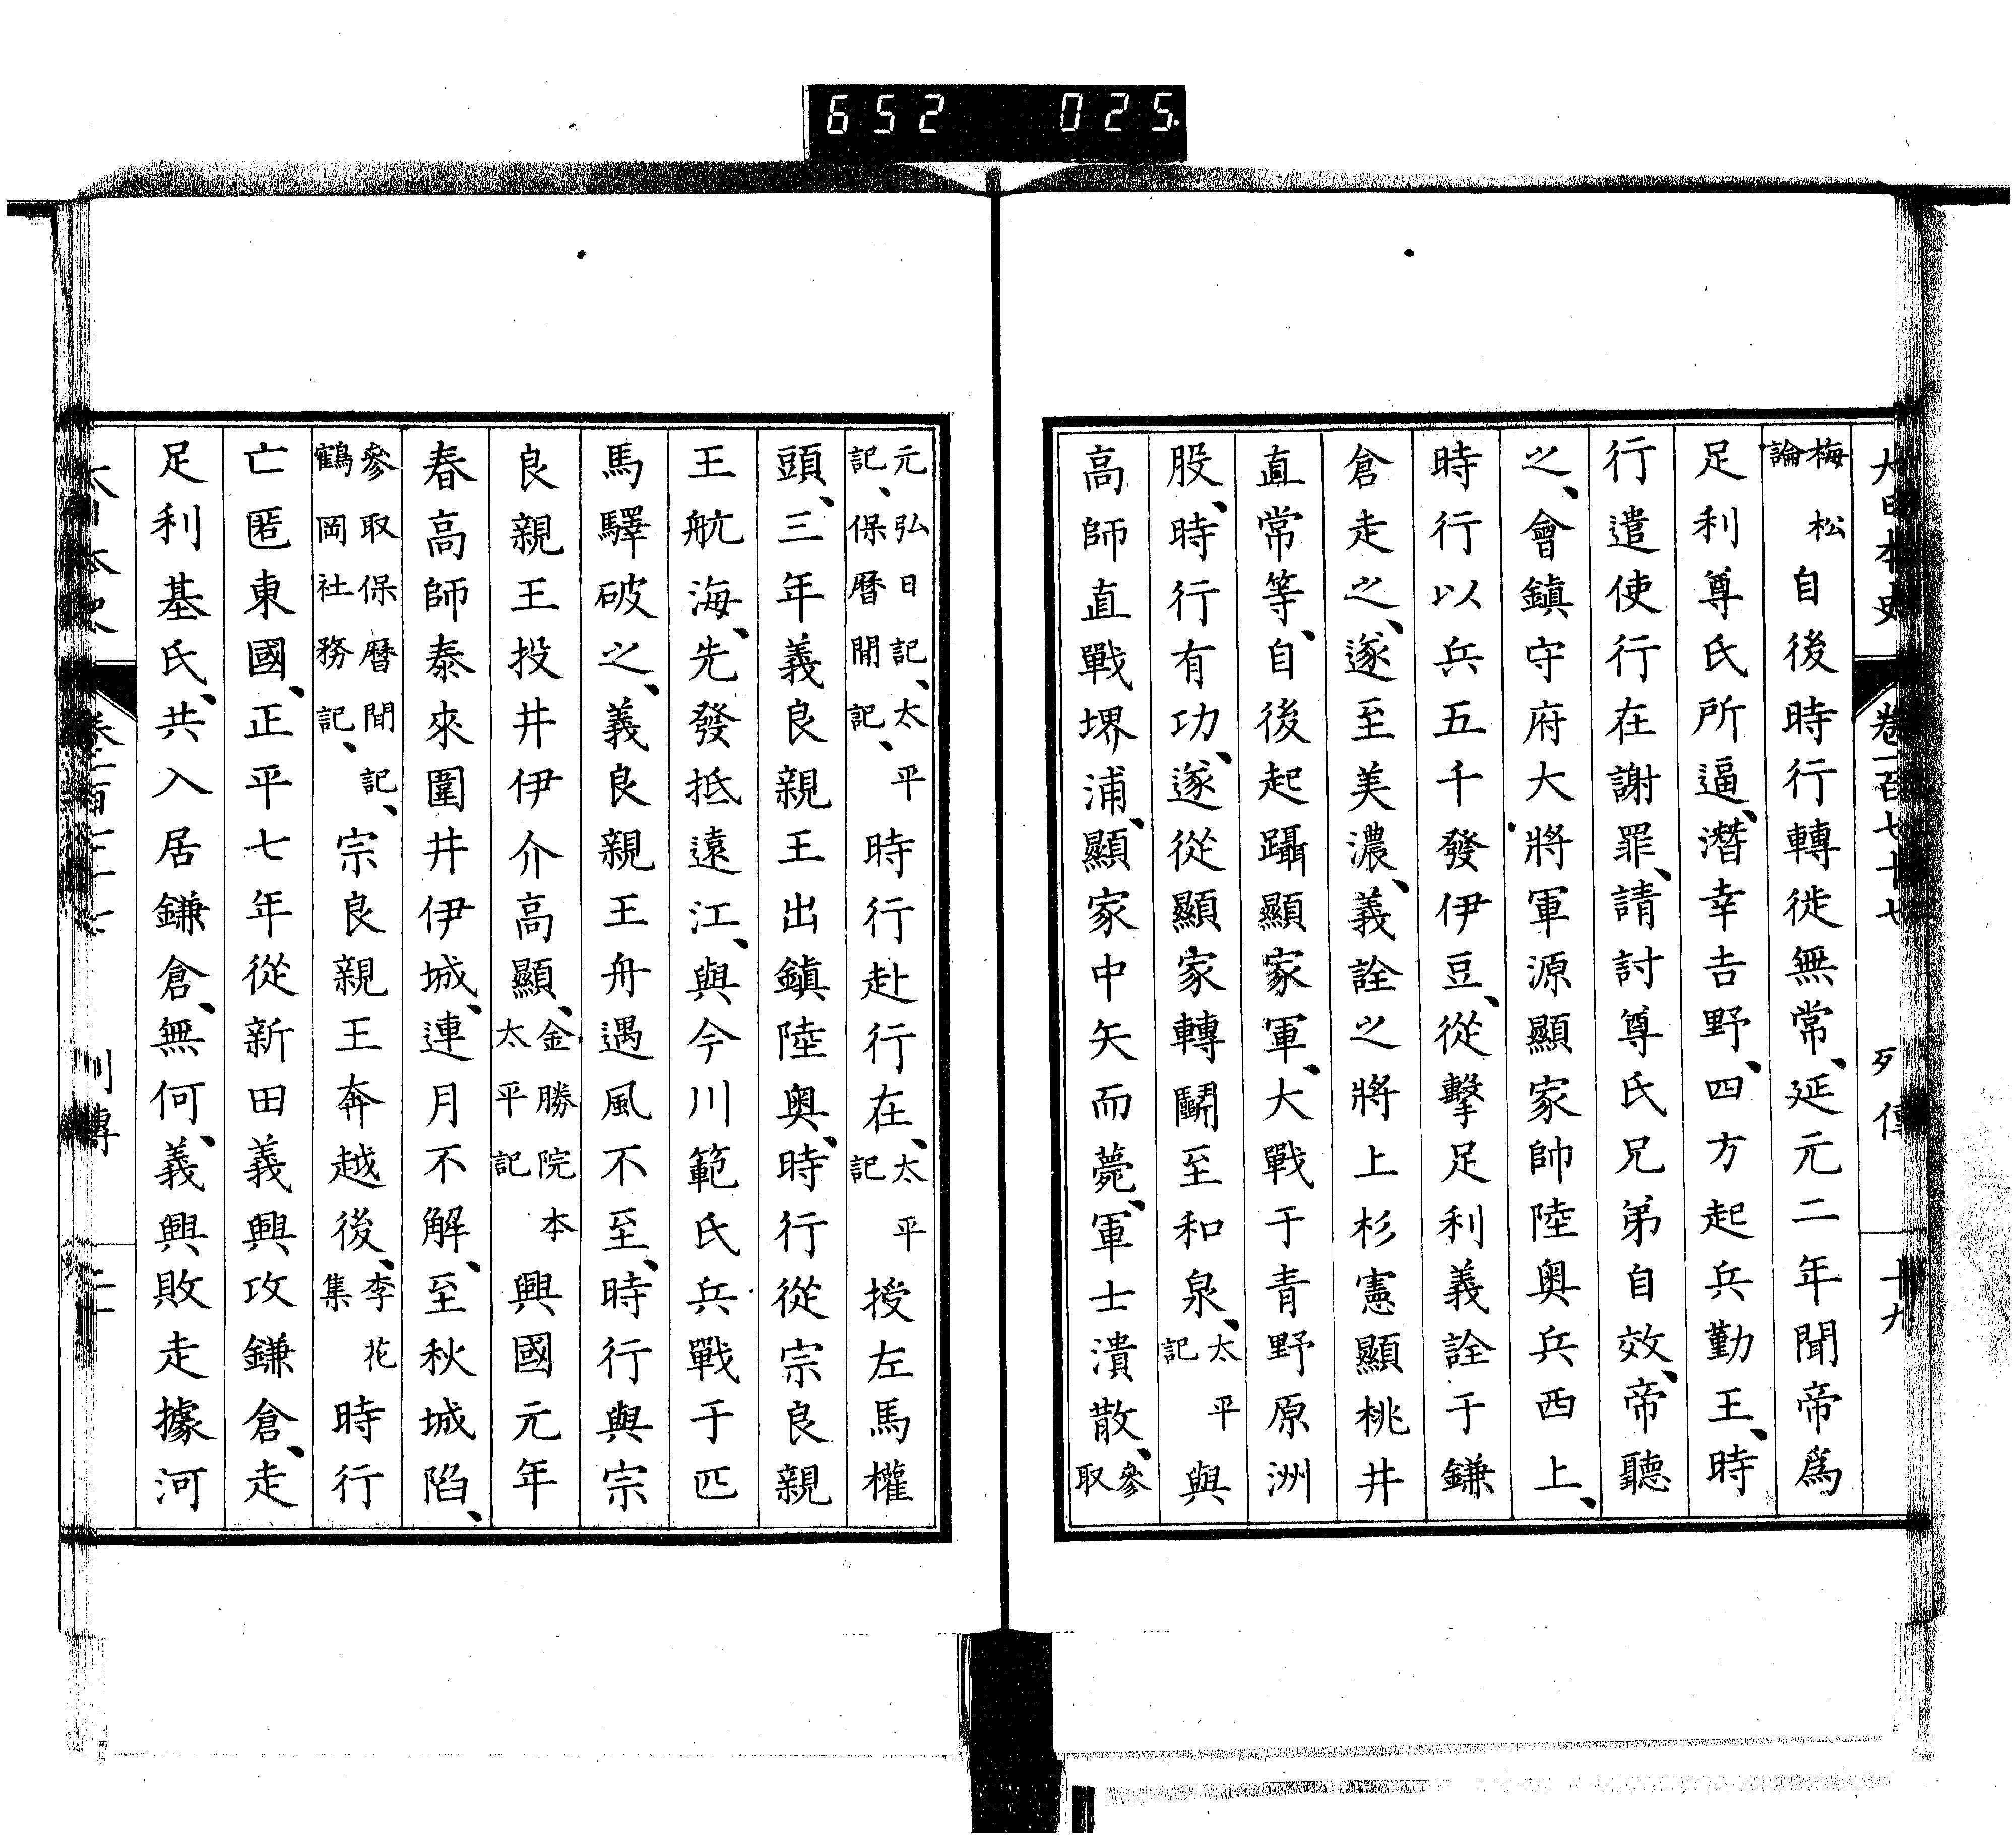 652 025
大日本史 卷一百七十七 列傳 十九
梅松論 自後時行轉徙無常、延元二年聞帝爲
足利尊氏所逼、潛幸吉野、四方起兵勤王、時
行遣使行在謝罪、請討尊氏兄弟自效、帝聽
之、會鎮守府大將軍源顯家帥陸奥兵西上、
時行以兵五千發伊豆、從擊足利義詮于鎌
倉走之、遂至美濃、義詮之將上杉憲顯桃井
直常等、自後起躡顯家軍、大戰于青野原洲
股、時行有功、遂從顯家轉鬭至和泉、太平記 與
高師直戰堺浦、顯家中矢而薨、軍士潰散、參取
元弘日記、太平記、保曆閒記、時行赴行在、太平記 授左馬權
頭、三年義良親王出鎮陸奥、時行從宗良親
王航海、先發抵遠江、與今川範氏兵戰于匹
馬驛破之、義良親王舟遇風不至、時行與宗
良親王投井伊介高顯、金勝院本太平記 興國元年
春高師泰來圍井伊城、連月不解、至秋城陷、
參取保曆閒記、鶴岡社務記、宗良親王奔越後、李花集 時行
亡匿東國、正平七年從新田義興攻鎌倉、走
足利基氏、共入居鎌倉、無何、義興敗走據河